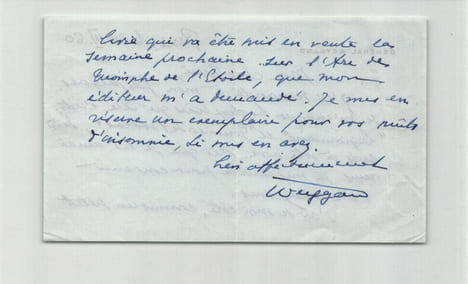 livre qui va être mis en vente la
semaine prochaine sur l'Arc de
Triomphe de l'Etoile, que mon
éditeur m'a demandé. Je mets en
réserve un exemplaire pour vos nuits
d'insomnie, si vous en avez.
très affectueusement
Weygand